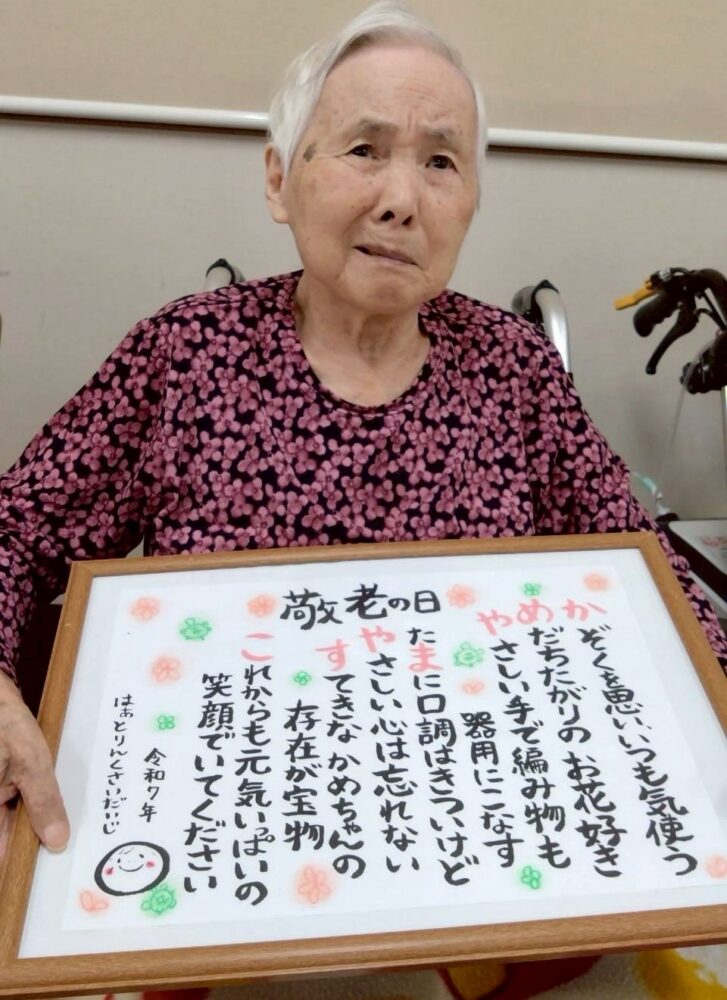 敬老の日
かぞくを思い、いつも気使う
めだちたがりの お花好き
やさしい手で編み物も
器用にこなす
たまに口調はきついけど
やさしい心は忘れない
すてきな かめちゃんの
存在が宝物
これからも元気いっぱいの
笑顔でいてください
令和7年
はぁとりんくさいだいじ